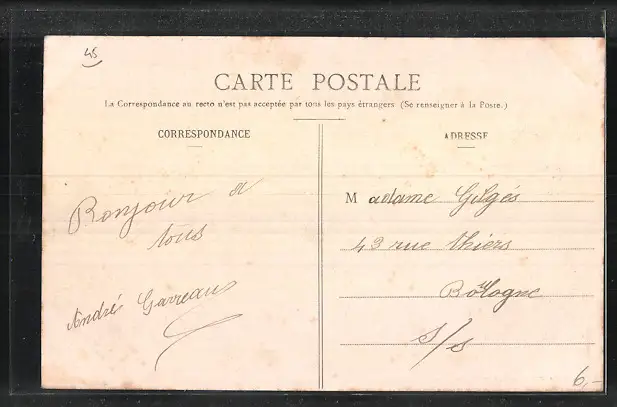 45
CARTE POSTALE
La Correspondance au recto n'est pas acceptée par tous les pays étrangers (Se renseigner à la Poste.)
CORRESPONDANCE
Bonjour a
tous
André Garreau
ADRESSE
Madame Gilgés
43 rue Thiers
Boulogne
s/s
6,-